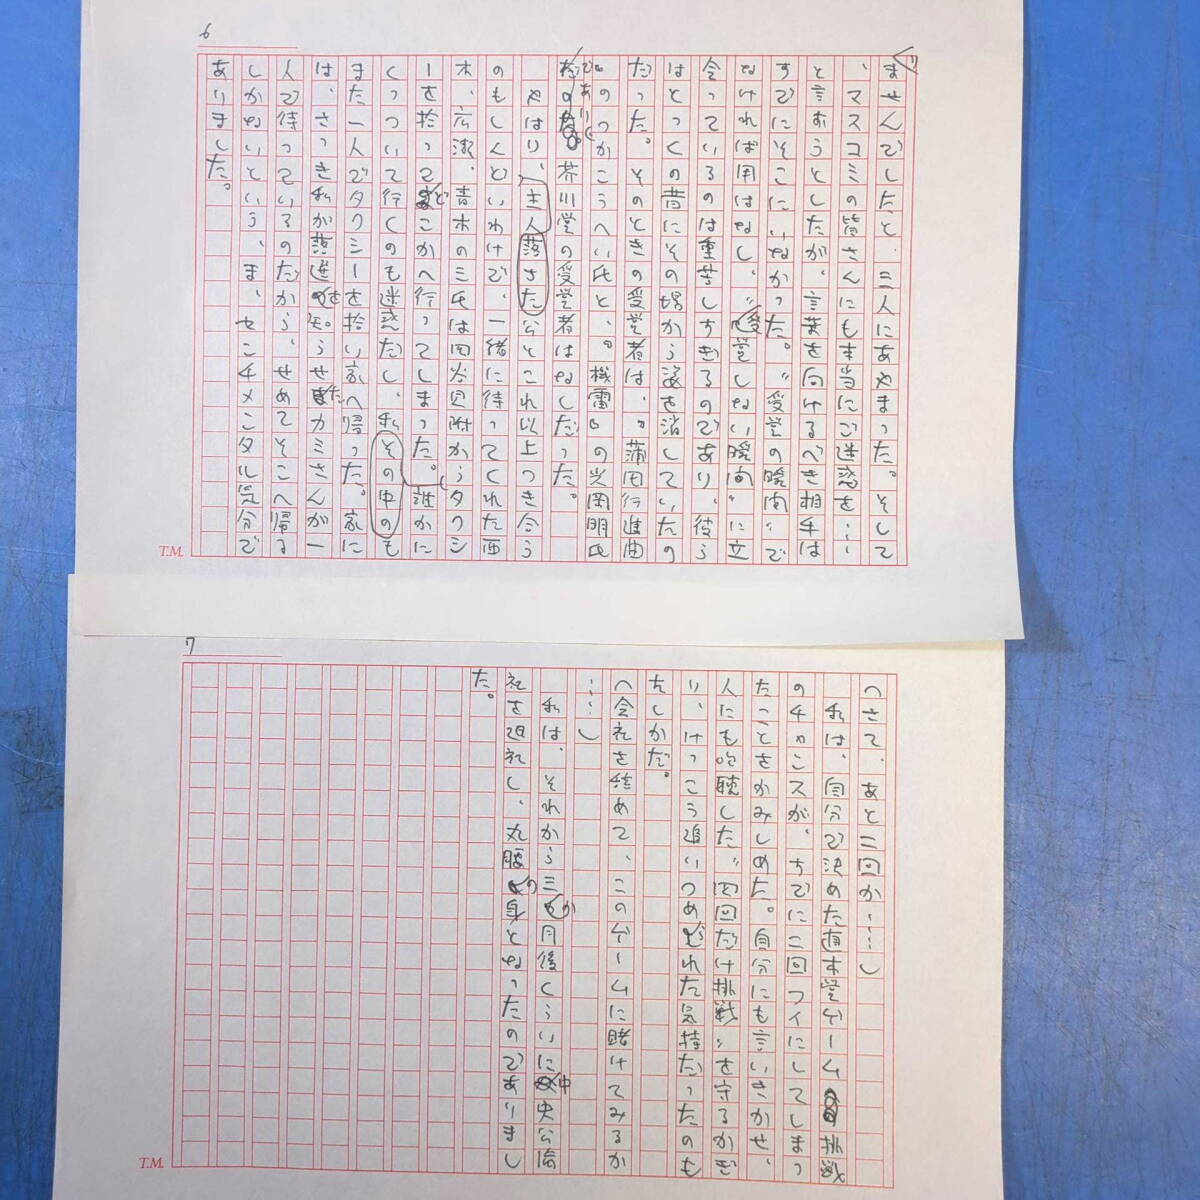 6
ませんでしたと、三人にあやまった。そして
、マスコミの皆さんにも本当にご迷惑を……
と言おうとしたが、言葉を向けるべき相手は
すでにそこにいなかった。〝受賞の瞬間〟で
なければ用はなし、〝受賞しない瞬間〟に立
会っているのは重苦しすぎるのであり、彼ら
はとっくの昔にその場から姿を消していたの
だった。そのときの受賞者は、『蒲田行進曲
』のつかこうへい氏と、『機雷』の光岡明氏
であり、芥川賞の受賞者はなしだった。
やはり、主人落さた公とこれ以上つき合う
のもしんどいわけで、一緒に待ってくれた西
木、広瀬、青木の三氏は四谷見附からタクシ
ーを拾ってどこかへ行ってしまった。誰かに
くっついて行くのも迷惑だし、私その中のも
また一人でタクシーを拾い家へ帰った。家に
は、さっき私が落選を知らせたカミさんが一
人で待っているのだから、せめてそこへ帰る
しかないという、ま、センチメンタル気分で
ありました。
T.M.
7
へさて、あと二回か……」
私は、自分で決めた直木賞ゲーム挑戦
のチャンスが、すでに二回フイにしてしまっ
たことをかみしめた。自分にも言いきかせ、
人にも吹聴した〝四回だけ挑戦〟を守るかぎ
り、けっこう追いつめられた気持だったのも
たしかだ。
へ会社を辞めて、このゲームに賭けてみるか
……」
私は、それから三か月後くらいに中央公論
社を退社し、丸腰の身となったのでありまし
た。
T.M.